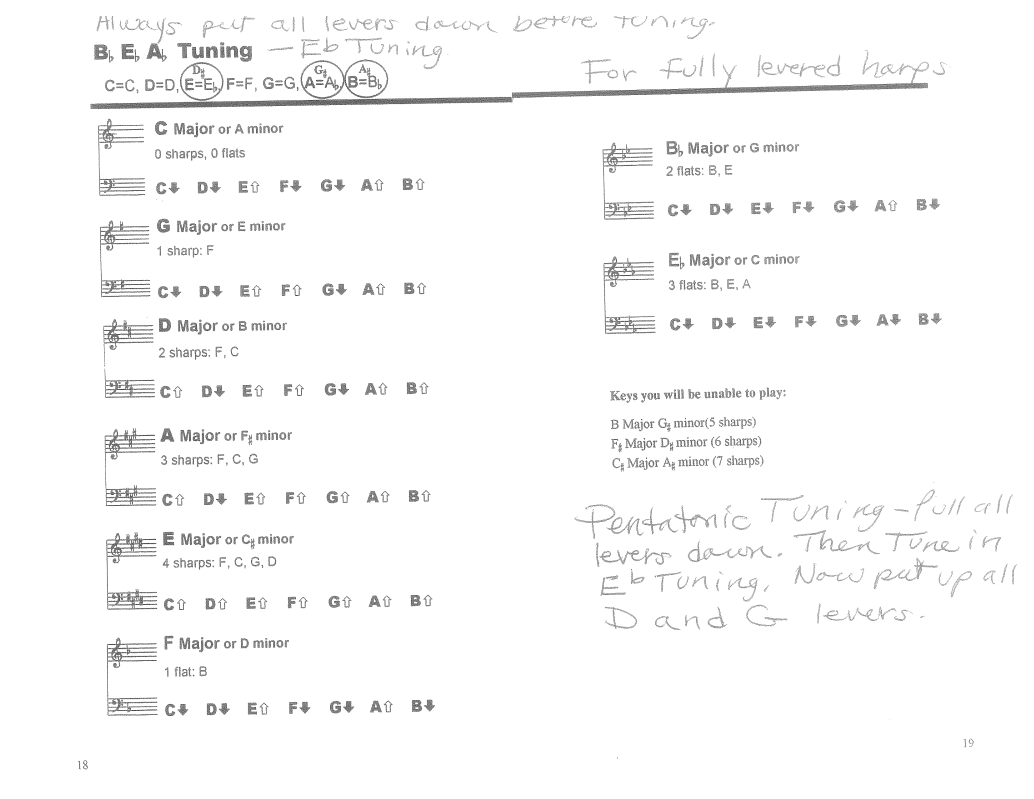 Always put all levers down before tuning.
B♭ E♭ A♭ Tuning — Eb Tuning
For fully levered harps
D♯ G♯ A♯
C=C, D=D, E=E♭, F=F, G=G, A=A♭, B=B♭
C Major or A minor
0 sharps, 0 flats
C⬇ D⬇ E⇧ F⬇ G⬇ A⇧ B⇧
G Major or E minor
1 sharp: F
C⬇ D⬇ E⇧ F⇧ G⬇ A⇧ B⇧
D Major or B minor
2 sharps: F, C
C⇧ D⬇ E⇧ F⇧ G⬇ A⇧ B⇧
A Major or F♯ minor
3 sharps: F, C, G
C⇧ D⬇ E⇧ F⇧ G⇧ A⇧ B⇧
E Major or C♯ minor
4 sharps: F, C, G, D
C⇧ D⇧ E⇧ F⇧ G⇧ A⇧ B⇧
F Major or D minor
1 flat: B
C⬇ D⬇ E⇧ F⬇ G⬇ A⇧ B⬇
18
B♭ Major or G minor
2 flats: B, E
C⬇ D⬇ E⬇ F⬇ G⬇ A⇧ B⬇
E♭ Major or C minor
3 flats: B, E, A
C⬇ D⬇ E⬇ F⬇ G⬇ A⬇ B⬇
Keys you will be unable to play:
B Major G♯ minor(5 sharps)
F♯ Major D♯ minor (6 sharps)
C♯ Major A♯ minor (7 sharps)
Pentatonic Tuning - Pull all
levers down. Then Tune in
E♭ Tuning. Now put up all
D and G levers.
19